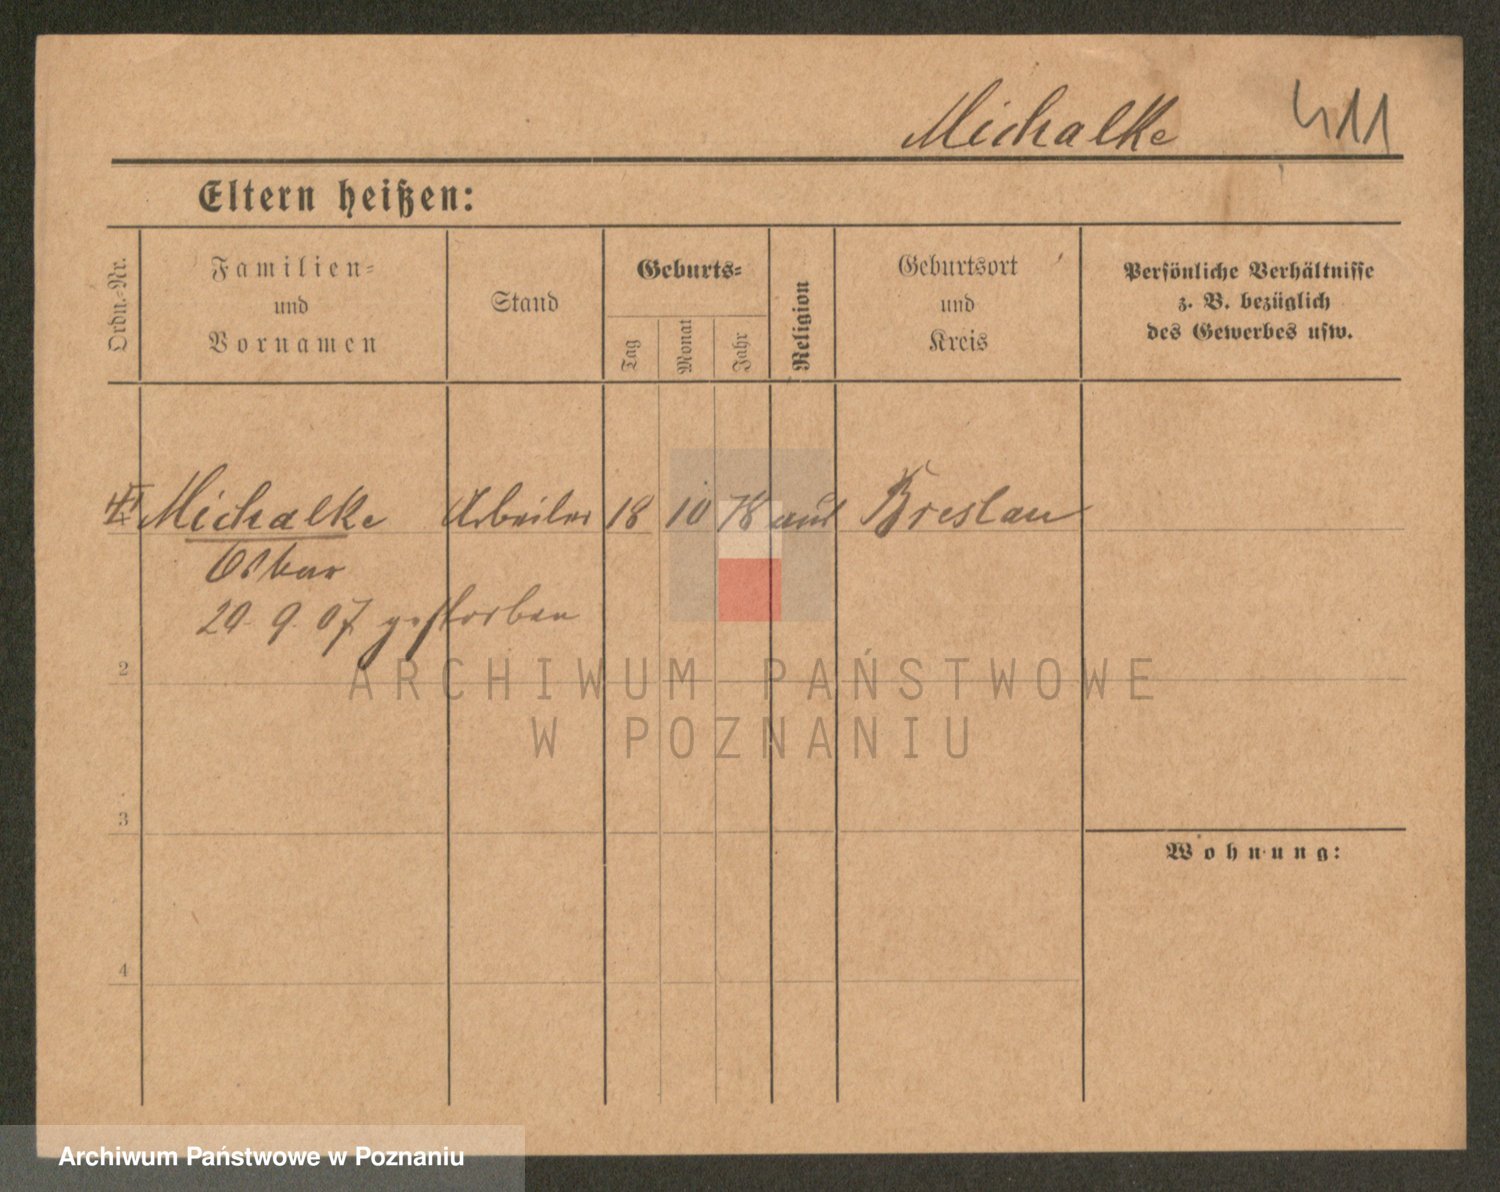 Michalke 411
Eltern heißen:
Ordn.-Nr.
Familien-
und
Vornamen
Stand
Geburts-
Tag
Monat
Jahr
Religion
Geburtsort
und
Kreis
Persönliche Verhältnisse
z. B. bezüglich
des Gewerbes usw.
Michalke Arbeiter 18 10 78 Breslau
Oskar
29. 9. 07 gestorben
2
ARCHIWUM PAŃSTWOWE
W POZNANIU
3
Wohnung:
4
Archiwum Państwowe w Poznaniu